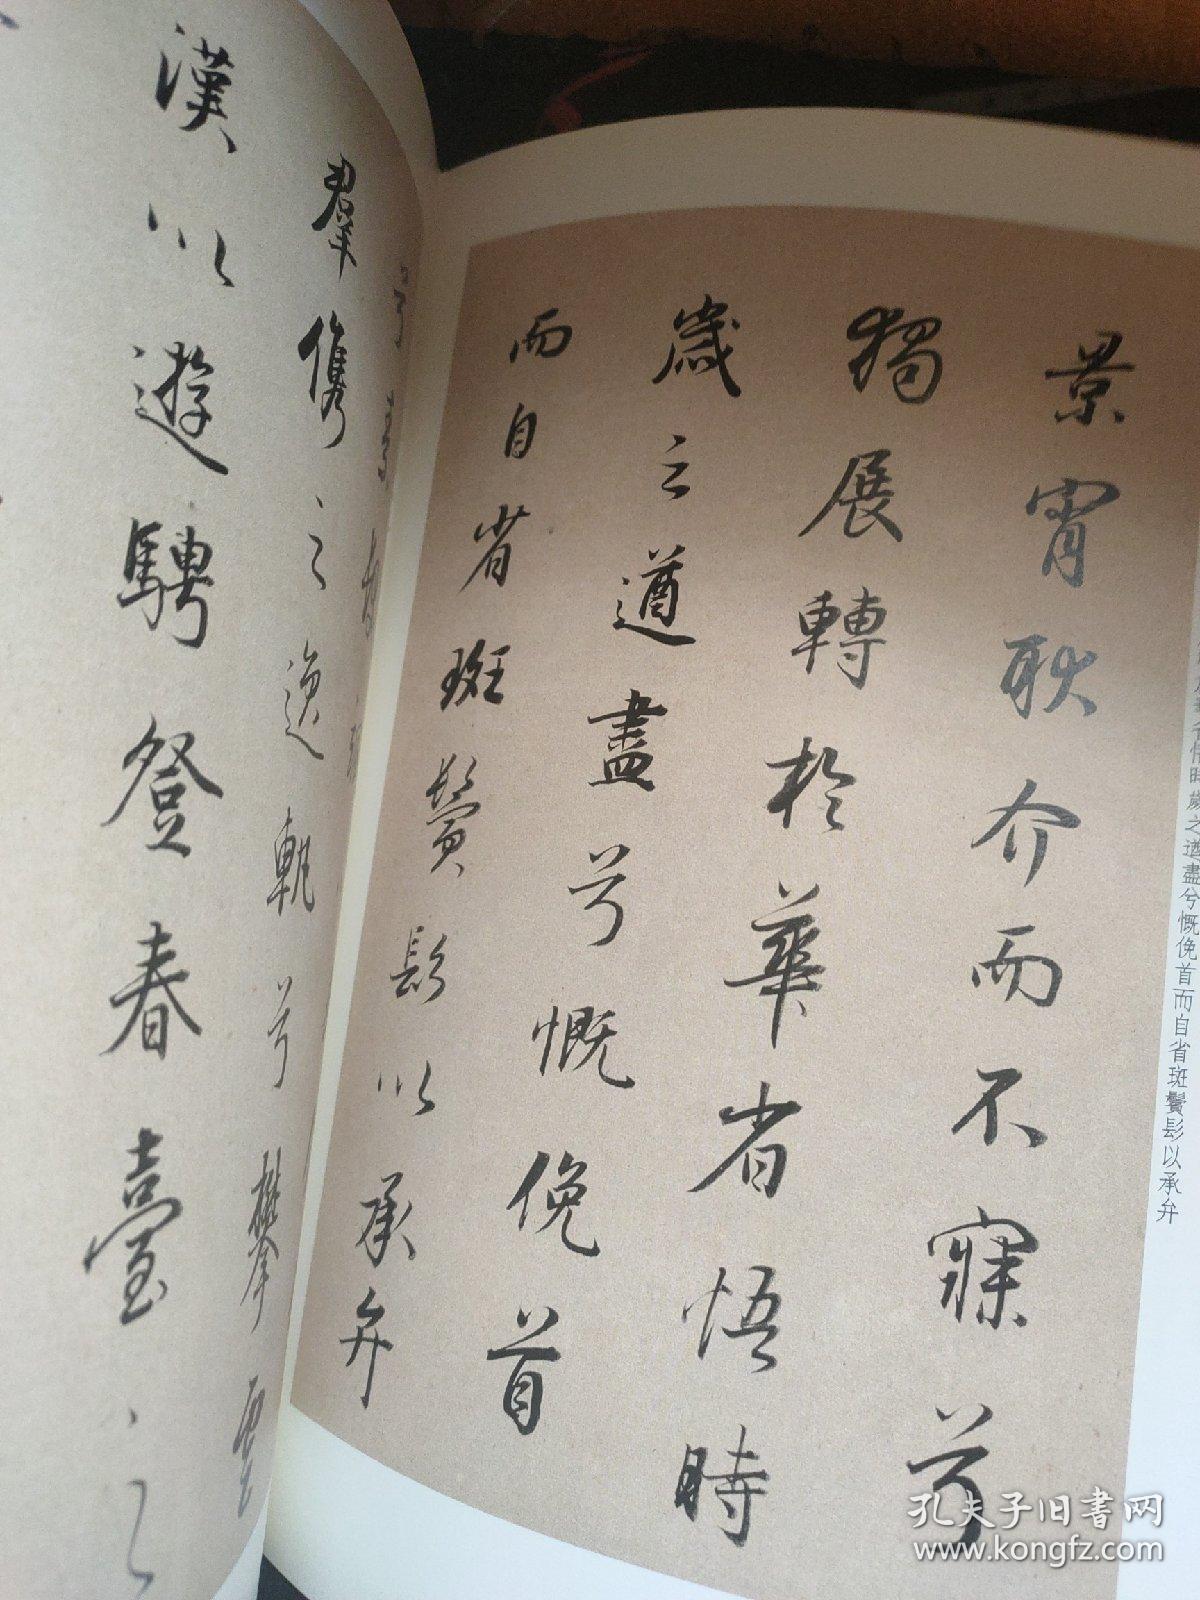 景宵耿介而不寐兮
獨展轉於華省悟時
歲之遒盡兮慨俛首
而自省斑鬢髟以承弁
時歲之遒盡兮慨俛首而自省斑鬢髟以承弁
羣儁之逸軌兮攀雲
漢以遊騁登春臺之
孔夫子旧书网
www.kongfz.com